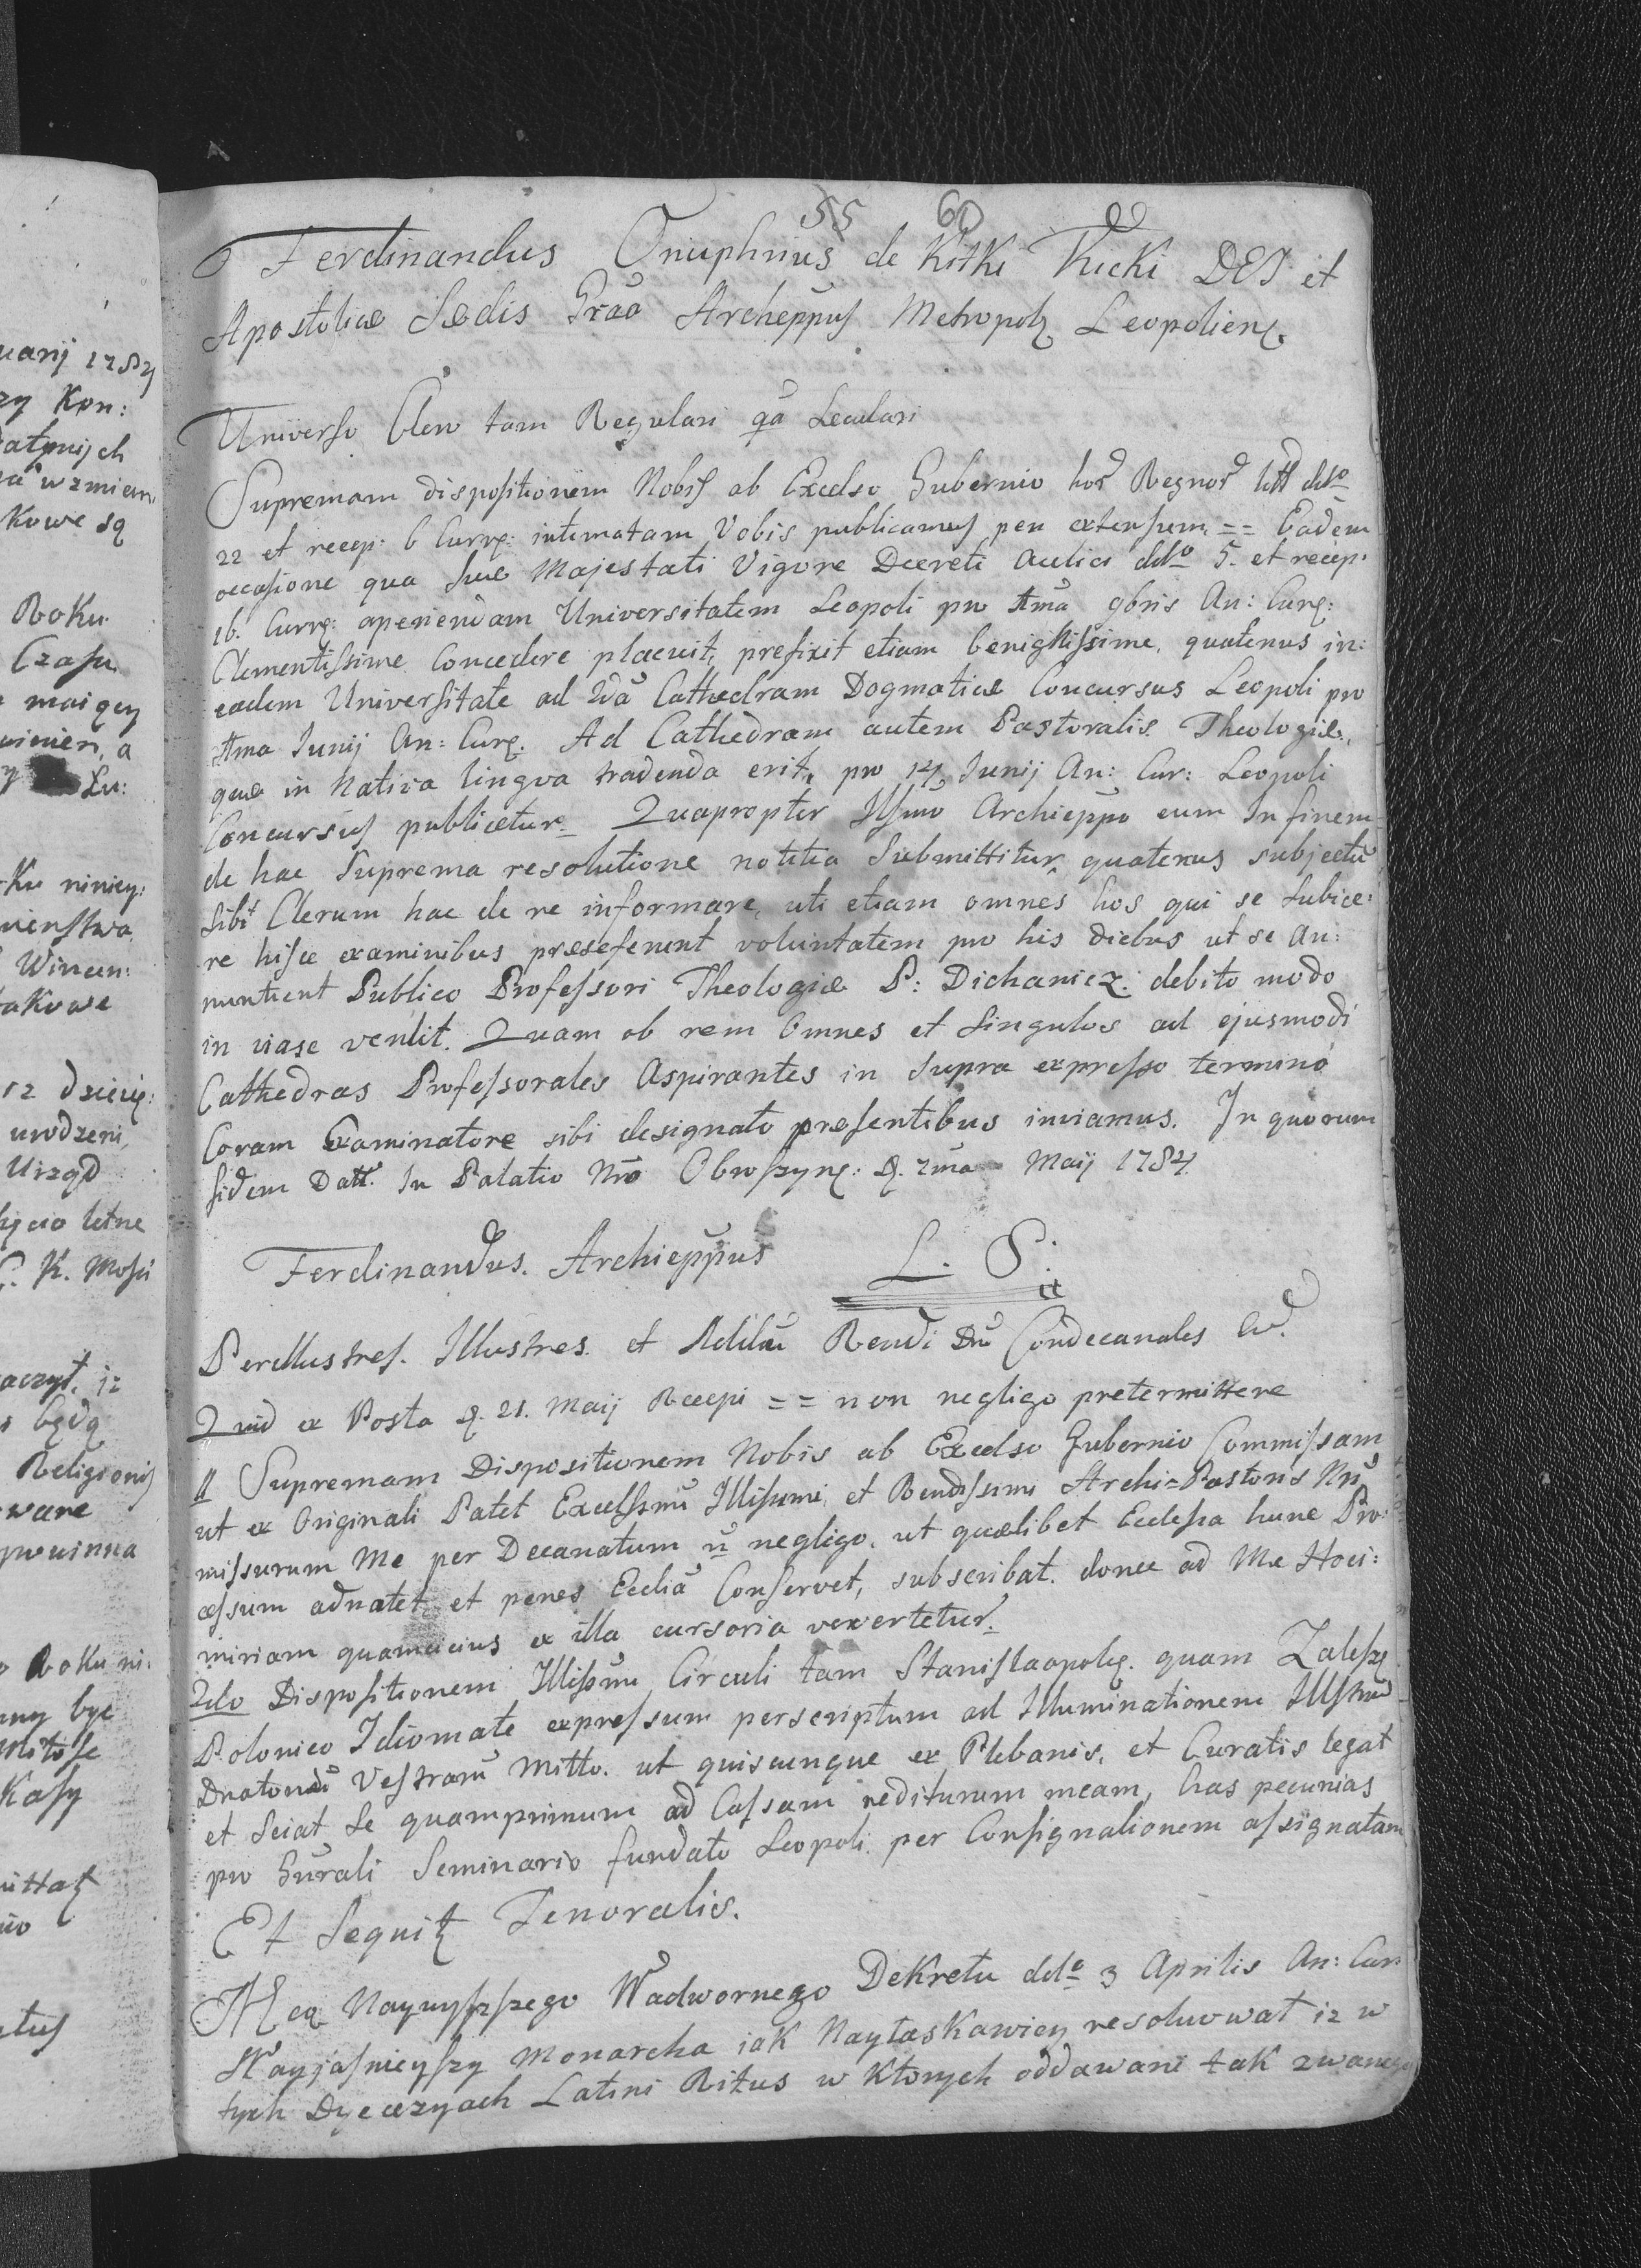 55 60
Ferdinandus Onuphrius de Kitki Kicki DEI et
Apostolicæ Sedis Grãa Archieppus Metropol Leopolien.
Universo Clero tam Regulari qã Seculari
Supremam dispositionem Nobis ab Excelso Gubernio hor Regnor ddo
22 et recep: 6 Curr: intimatam Vobis publicamus per extensum == Eadem
occasione qua suæ Majestati Vigore Decreti Aulici ddo 5. et recep.
16. Curr: aperiendam Universitatem Leopoli pro 1ma 9bris An: Curr:
Clementissime Concedere placuit, prefixit etiam benignissime, quatenus in:
eadem Universitate ad 2dã Cathedram Dogmaticæ Concursus Leopoli pro
1ma Junij An: Curr. Ad Cathedram autem Pastoralis Theologiæ,
quæ in Nativa lingva tradenda erit, pro 14 Junij An: Cur: Leopoli
Concursus publicetur. Quapropter Illsmo Archieppo eum In finem
de hac Suprema resolutione notitia Submittitur, quatenus subjectũ
sibi Clerum hac de re informare, uti etiam omnes hos qui se subice:
re hisce examinibus præseferunt voluntatem pro his diebus ut se an:
nuntient Publico Professori Theologiæ P: Dichanicz: debito modo
in viase venlit. Quam ob rem Omnes et Singulos ad ejusmodi
Cathedras Professorales Aspirantes in Supra expresso termino
Coram Examinatore sibi designato presentibus inviamus. In quorum
fidem Datt. In Palatio Nro Obroszyn: D. 7ma Maij 1784
Ferdinandus. Archieppus L. S.
Perillustres. Illustres et Adm Rendi Dni Condecanales
Quid ex Posta D. 21. Maij Recepi == non negligo pretermittere
Supremam Dispositionem Nobis ab Excelso Gubernio Commissam
ut ex Originali Patet Excelssmi Illissimi, et Rendissimi Archi=Pastoris Nri
missurum Me per Decanatum ñ negligo, ut quælibet Ecclesia hunc Pro:
cessum adnotet et penes Eccliã Conservet, subscribat. donec ad Me Hoci:
miriam quamcicius ex illa cursoria revertetur.
2do Dispositionem Illissimi Circuli tam Stanislaopol. quam Zalesz
Polonico Idiomate expressum perscriptum ad Illuminationem
Dnatonũ Vestrarũ Mitto. ut quiscunque ex Plebanis, et Curatis legat
et Sciat Se quamprimum ad Cassam rediturum meam, has pecunias
pro Gũrali Seminario fundato Leopoli per Consignationem assignatam
Et Sequit Tenoralis.
Mcą Naywyszszego Nadwornego Dekretu ddo 3 Aprilis An: Curr
Nayjasnieyszy Monarcha iak Nayłaskawiey resolwował iz w
tych Dyecezyach Latini Ritus w Ktorych oddawani tak zwanego
uarij 1784
zy Kon:
wzmian
Kowe są
Roku
Czasu
maiący
winien, a
Ku niniey:
Wincen:
akowe
12 dzieci:
urodzeni,
Urząd
letne
K. Mości
aczył, iz
będą
Religionis
wane
powinna
Roku ni.
być
Kasy